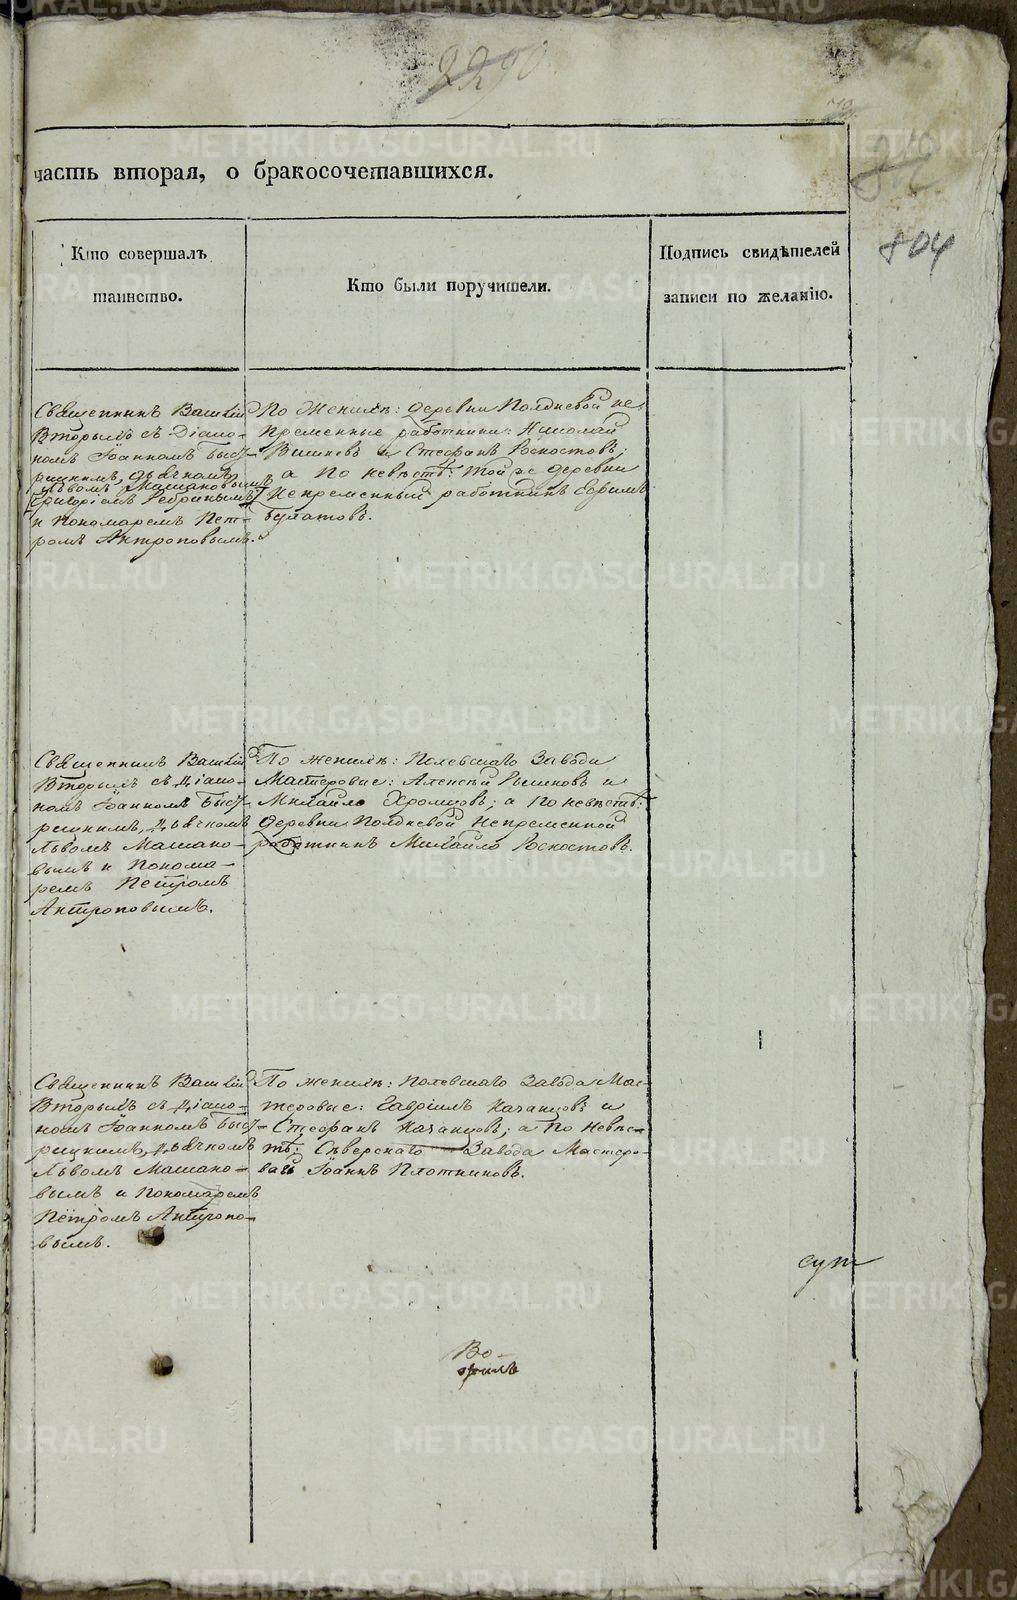 2290
804
часть вторая, о бракосочетавшихся.
Кто совершалъ
таинство.
Кто были поручители.
Подпись свидѣтелей
записи по желанію.
Священникъ Василій
Вторыхъ съ Діако-
номъ Іоанномъ Быст-
рицкимъ, дьячкомъ
Львомъ
Григоріемъ
и Пономаремъ Пет-
ромъ Антроповымъ.
По женихѣ: деревни Полдневой не
пременные работники: Николай
и Стефанъ Роскостовъ;
а по невѣстѣ: той же деревни
Непременный работникъ Ефимъ
Булатовъ.
Священникъ Василій
Вторыхъ съ Діако-
номъ Іоанномъ Быст-
рицкимъ, дьячкомъ
Львомъ
вымъ и Понома-
ремъ Петромъ
Антроповымъ.
По женихѣ: Полевскаго Завода
Мастеровые: Алексѣй и
Михайло Хромцовъ; а по невѣстѣ:
деревни Полдневой Непременной
работникъ Михайло Роскостовъ.
Священникъ Василій
Вторыхъ съ Діако-
номъ Іоанномъ Быст-
рицкимъ, дьячкомъ
Львомъ
вымъ и Пономаремъ
Петромъ Антропо-
вымъ.
По женихѣ: Полевскаго Завода Мас-
теровые: Гавріилъ Казанцовъ и
Стефанъ Казанцовъ; а по невѣс-
тѣ: Сѣверскаго Завода Мастеро-
вой Іоаннъ Плотниковъ.
METRIKI.GASO-URAL.RU